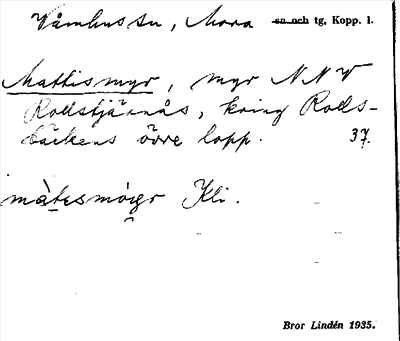 Våmhus sn, Mora ~~sn och~~ tg, Kopp. l.
Mattismyr, myr NNV
Rollstjärnås, kring Rolls-
bäckens övre lopp. 37.
màtɛsmóɪ̯ɛr Kli.
Bror Lindén 1935.